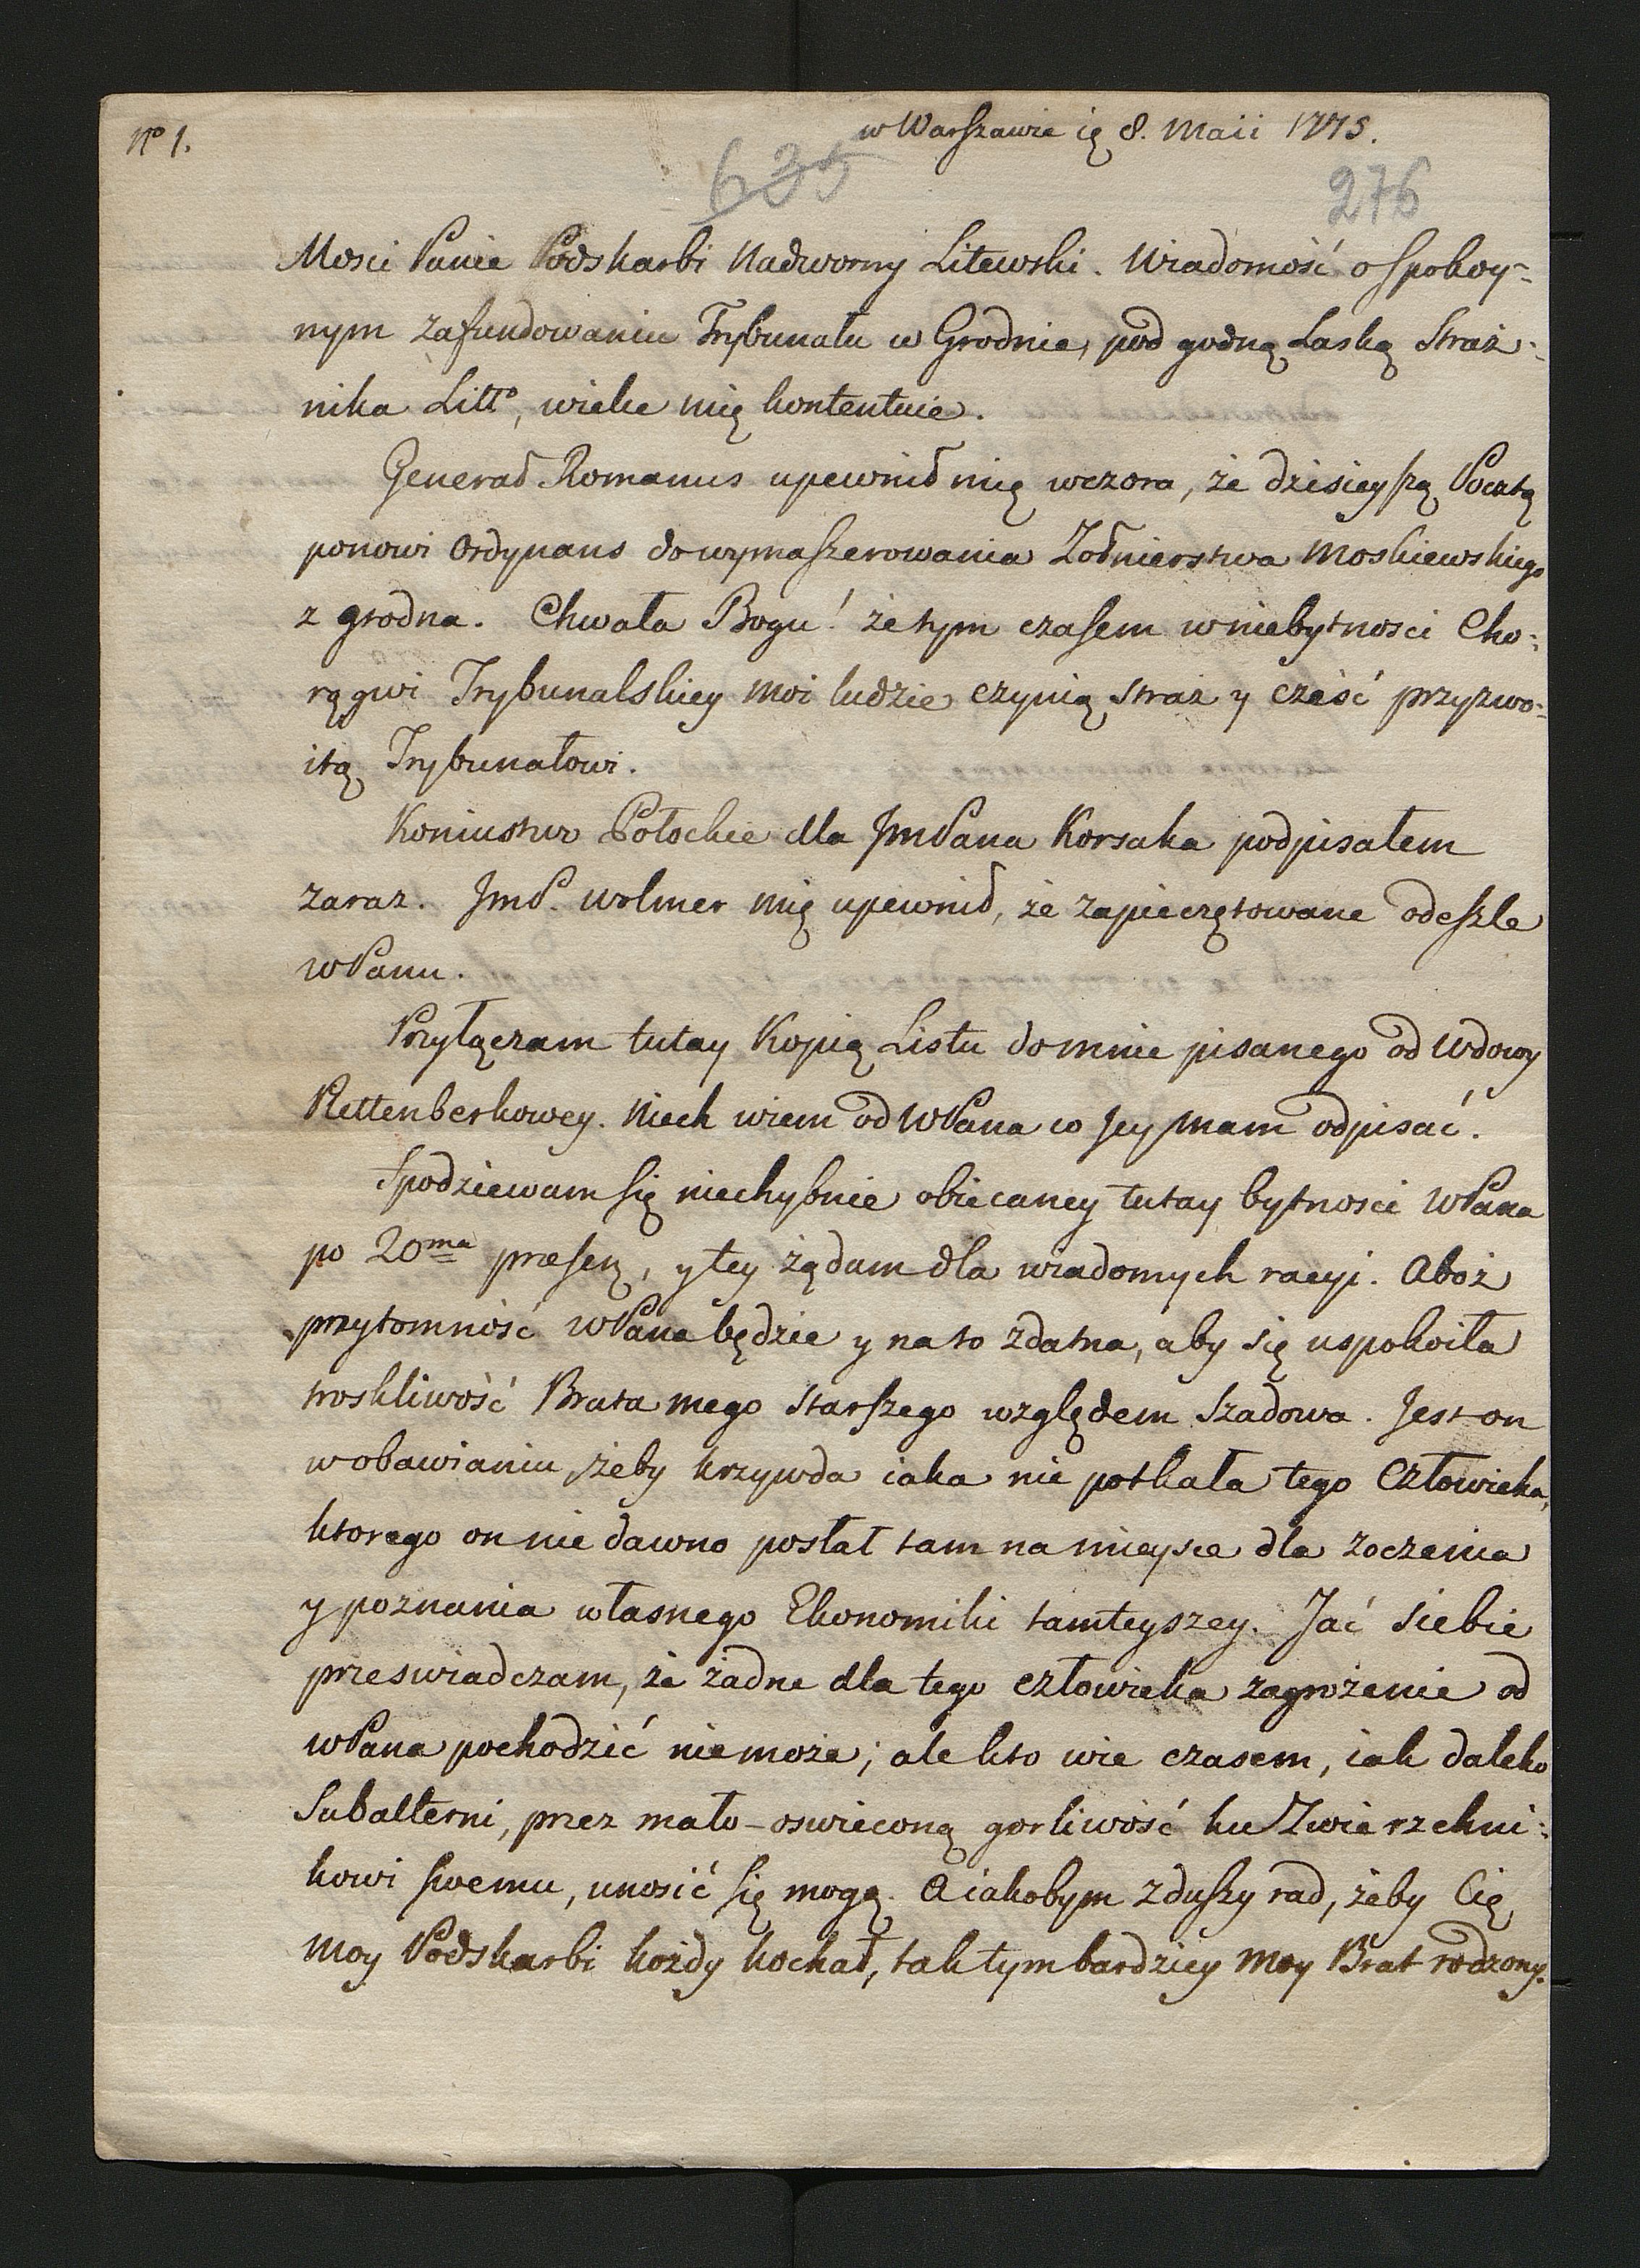 No 1.
w Warszawie ię 8. Maii 1775.
635
276
Mosci Panie Podskarbi Nadworny Litewski. Wiadomość o spokoy-
nym zafundowaniu Trybunału w Grodnie, pod godną Laską Straż-
nika Litto, wielce mię kontentuie.
Generał Romanus upewnił mię wczora, że dzisieyszą Pocztą
ponowi Ordynans do wymaszerowania Zołnierstwa Moskiewskiego
z Grodna. Chwała Bogu! że tym czasem w niebytnosci Cho-
rągwi Trybunalskiey moi ludzie czynią straż y cześć przyzwo-
itą Trybunałowi.
Koniustwo Połockie dla JmPana Korsaka podpisałem
zaraz. JmP. Wolmer mię upewnił, że zapieczętowane odeszle
WPanu.
Przyłączam tutay Kopią Listu do mnie pisanego od Wdowy
Rettenberkowey. Niech wiem od WPana co Jey mam odpisać.
Spodziewam się niechybnie obiecaney tutay bytnosci WPana
po 20ma præsen, y tey żądam dla wiadomych racyi. Aboż
przytomność WPana będzie y na to zdatna, aby się uspokoiła
troskliwość Brata mego starszego względem Szadowa. Jest on
w obawianiu, żeby krzywda iaka nie potkała tego Człowieka,
ktorego on nie dawno posłał tam na mieysce dla zoczenia
y poznania własnego Ekonomiki tamteyszey. Jać siebie
przeswiadczam, że żadne dla tego człowieka zagrożenie od
WPana pochodzić nie może; ale kto wie czasem, iak daleko
Subalterni, przez mało-oswieconą gorliwość ku Zwierzchni-
kowi swemu, unosić się mogą. A iakobym z duszy rad, żeby Cię
moy Podskarbi każdy kochał, tak tym bardziey moy Brat rodzony.